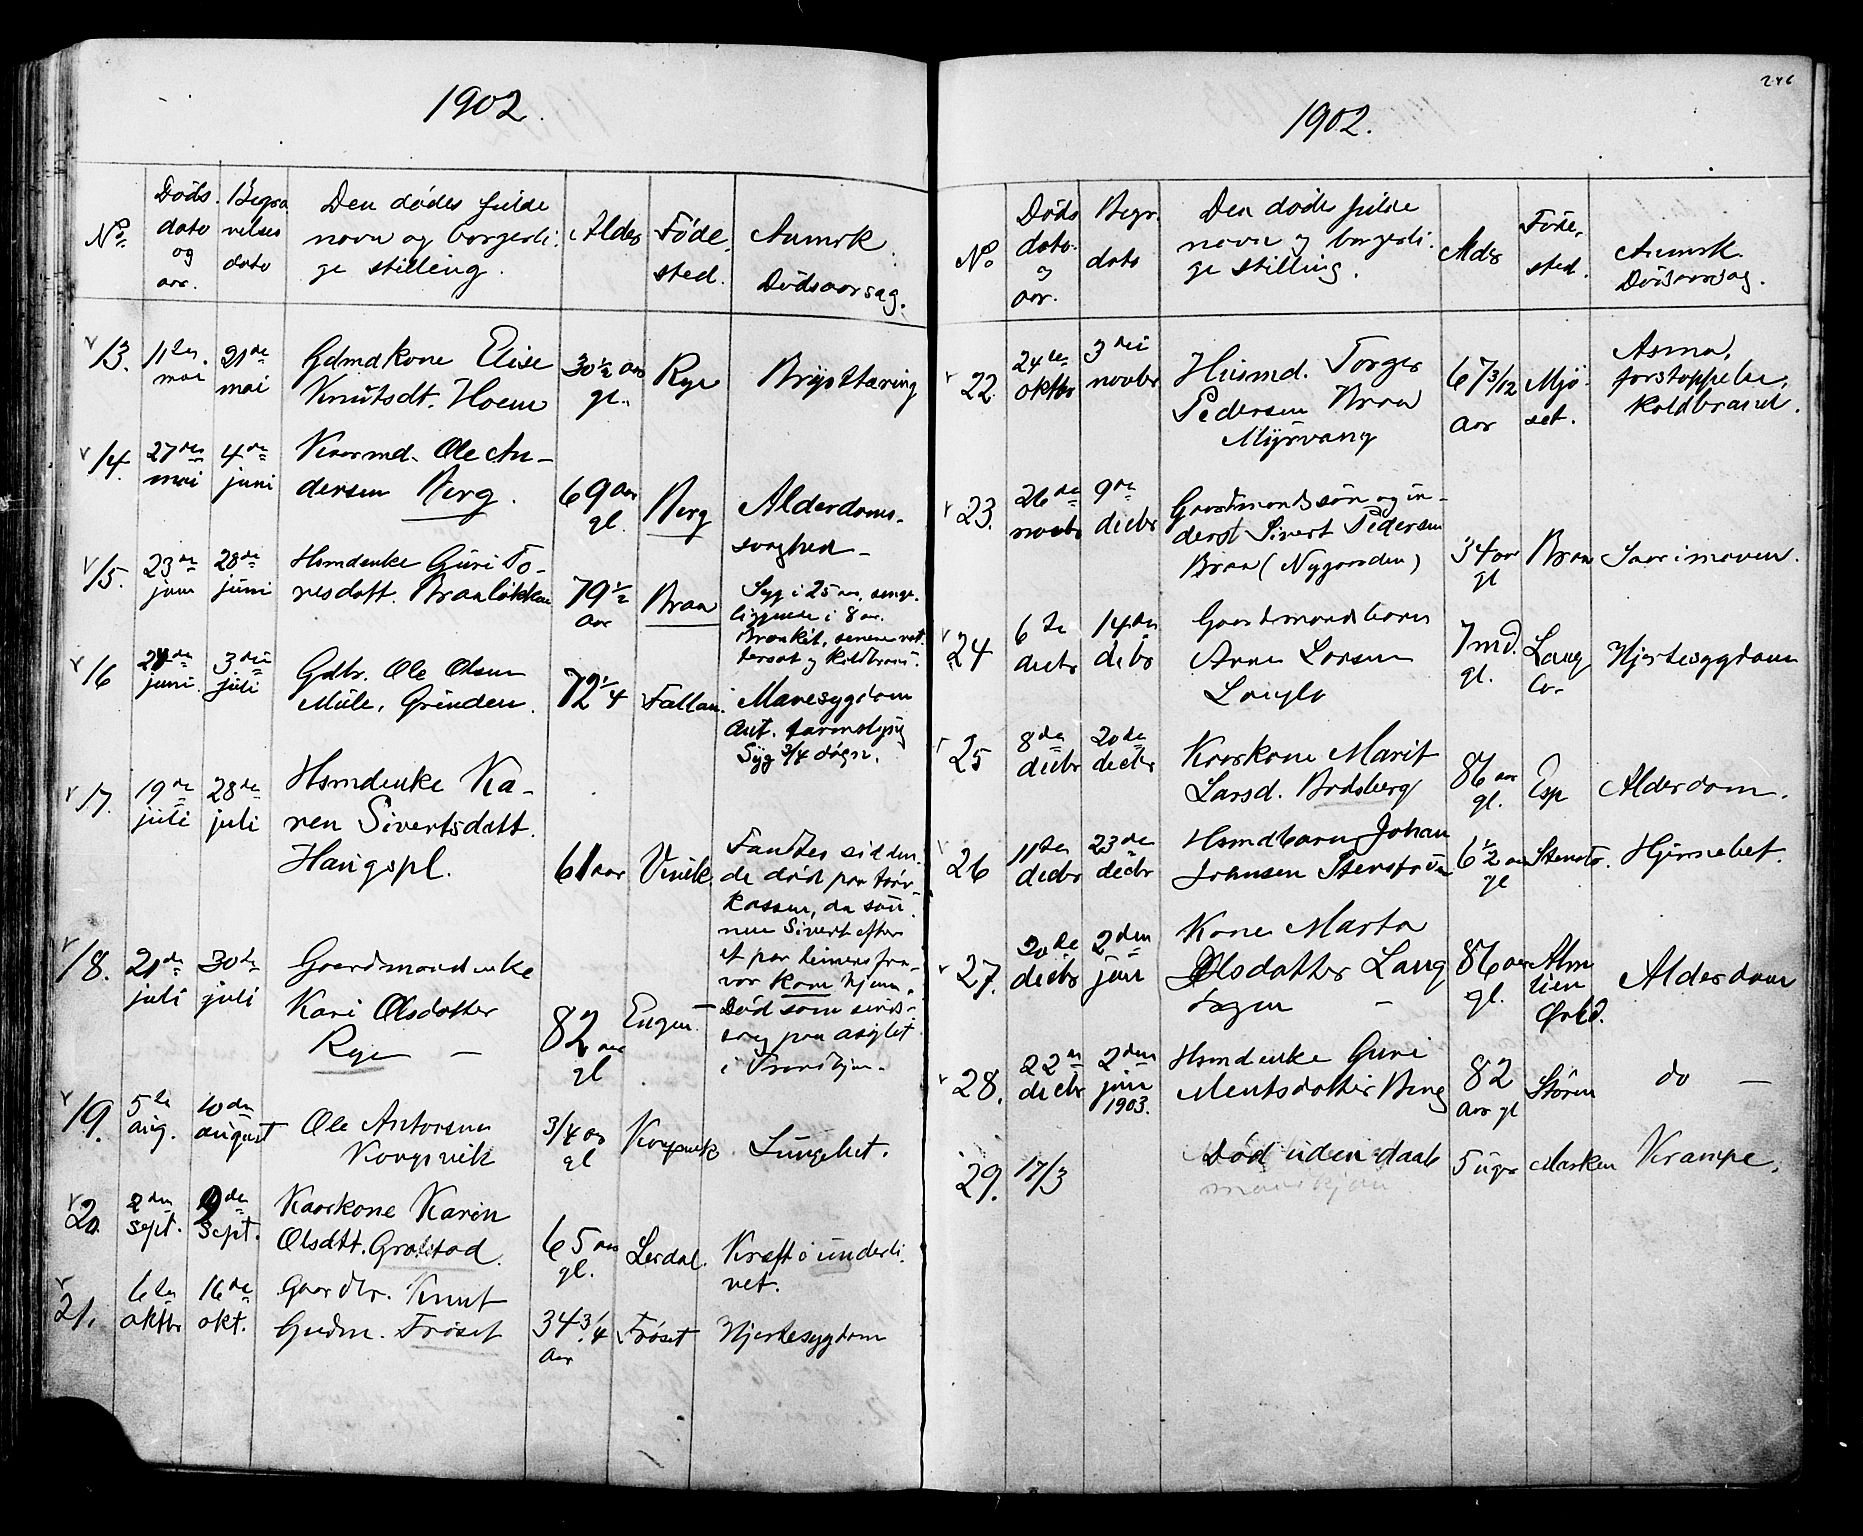 1902.
Døds
dato
og
aar.
Begra
velses
dato
No
Den dødes fulde
navn og borgerli.
ge stilling.
Alder
Føde.
sted.
Anmrk.
Dødsaarsag.
13.
11te
mai
21de
mai
Gdmdkone Elise
Knutsdt. Hoem
30½ aar
gl.
Rye
Brysttæring
14.
27de
mai
4de
juni
Kaarmd. Ole An-
dersen Berg.
69 aar
gl.
Berg
Alderdoms-
svaghed-
15.
23de
juni
28de
juni
Hsmdenke Guri To-
resdatt. Braaløkken
79½
aar
Braa
Syg i 25 aar, senge-
liggende i 8 aar.
Bronkit, senere vat-
tersot og koldbrand.
16
juni
3die
juli
Gdbr. Ole Olsen
Mule, Grinden.
72¼
Fallan.
Mavesygdom
ant. tarmslyng
Syg ¾ døgn.
17.
19de
juli
28de
juli
Hsmdenke Ka-
ren Sivertsdatt.
Haugspl.
61 aar
Vinik.
Fandtes sidden.
de død paa tørv-
kassen, da søn.
nen Sivert efter
et par timers fra-
vær kom hjem.
18.
21de
juli
30de
juli
Gaardmandenke
Kari Olsdatter
Rye -
82 aar
gl
Engen
Død som sinds-
syg paa asylet
i Trondhjem.
19.
5te
aug.
10de
august
Ole Antonsen
Korgsvik
3/4 aar
gl
Korgsvik
Lungebet.
20.
2den
sept.
9de
sept.
Kaarkone Karen
Olsdtt. Gravstad.
65 aar
gl.
Leidal.
Kræft i underli.
vet.
21.
6te
oktbr
16de
okt.
Gaardbr. Knut
Gudm. Frøset
34 3/4
aar
Frøset
Hjertesygdom
246
1902.
No
Døds
dato.
og
aar.
Begr.
dato
Den dødes fulde
navn og borgerli.
ge stilling.
Alder
Føde,
sted.
Anmrk.
Dødsaarsag.
22.
24de
oktbr
3die
novbr
Husmd. Torger
Pedersen Braa
Myrvang
67 3/12
aar
Mjø-
set.
Asma,
forstoppelse,
koldbrand.
23.
26de
novbr
9de
decbr
Gaardmandssøn og in-
derst Sivert Pedersen
Braa (Nygaarden)
34 aar
gl
Braa
Saar i maven.
24
6te
decbr
14de
decbr
Gaardmandsbarn
Arne Larsen
Langlo
7 md.
gl.
Lang
lo.
Hjertesygdom
25
8de
decbr
20de
decbr
Kaarkone Marit
Larsd. Brdsberg
86 aar
gl.
Esp
Alderdom.
26
11te
decbr
23de
decbr
Hsmdbarn Johan
Johansen Stenstrøen
6½ aar
gl
Stenstr.
Hjernebet.
27.
20de
decbr
2den
jan
Kone Marta
Olsdatter Lang
86 aar
gl.
Alm
lien
Ørkd.
Alderdom
28.
22de
decbr
2den
jan
1903.
Hsmdenke Guri
Mentsdatter Berg
82
aar gl
Støren
do -
29.
17/3
Død uden daab
5 uger
Marken
Krampe.